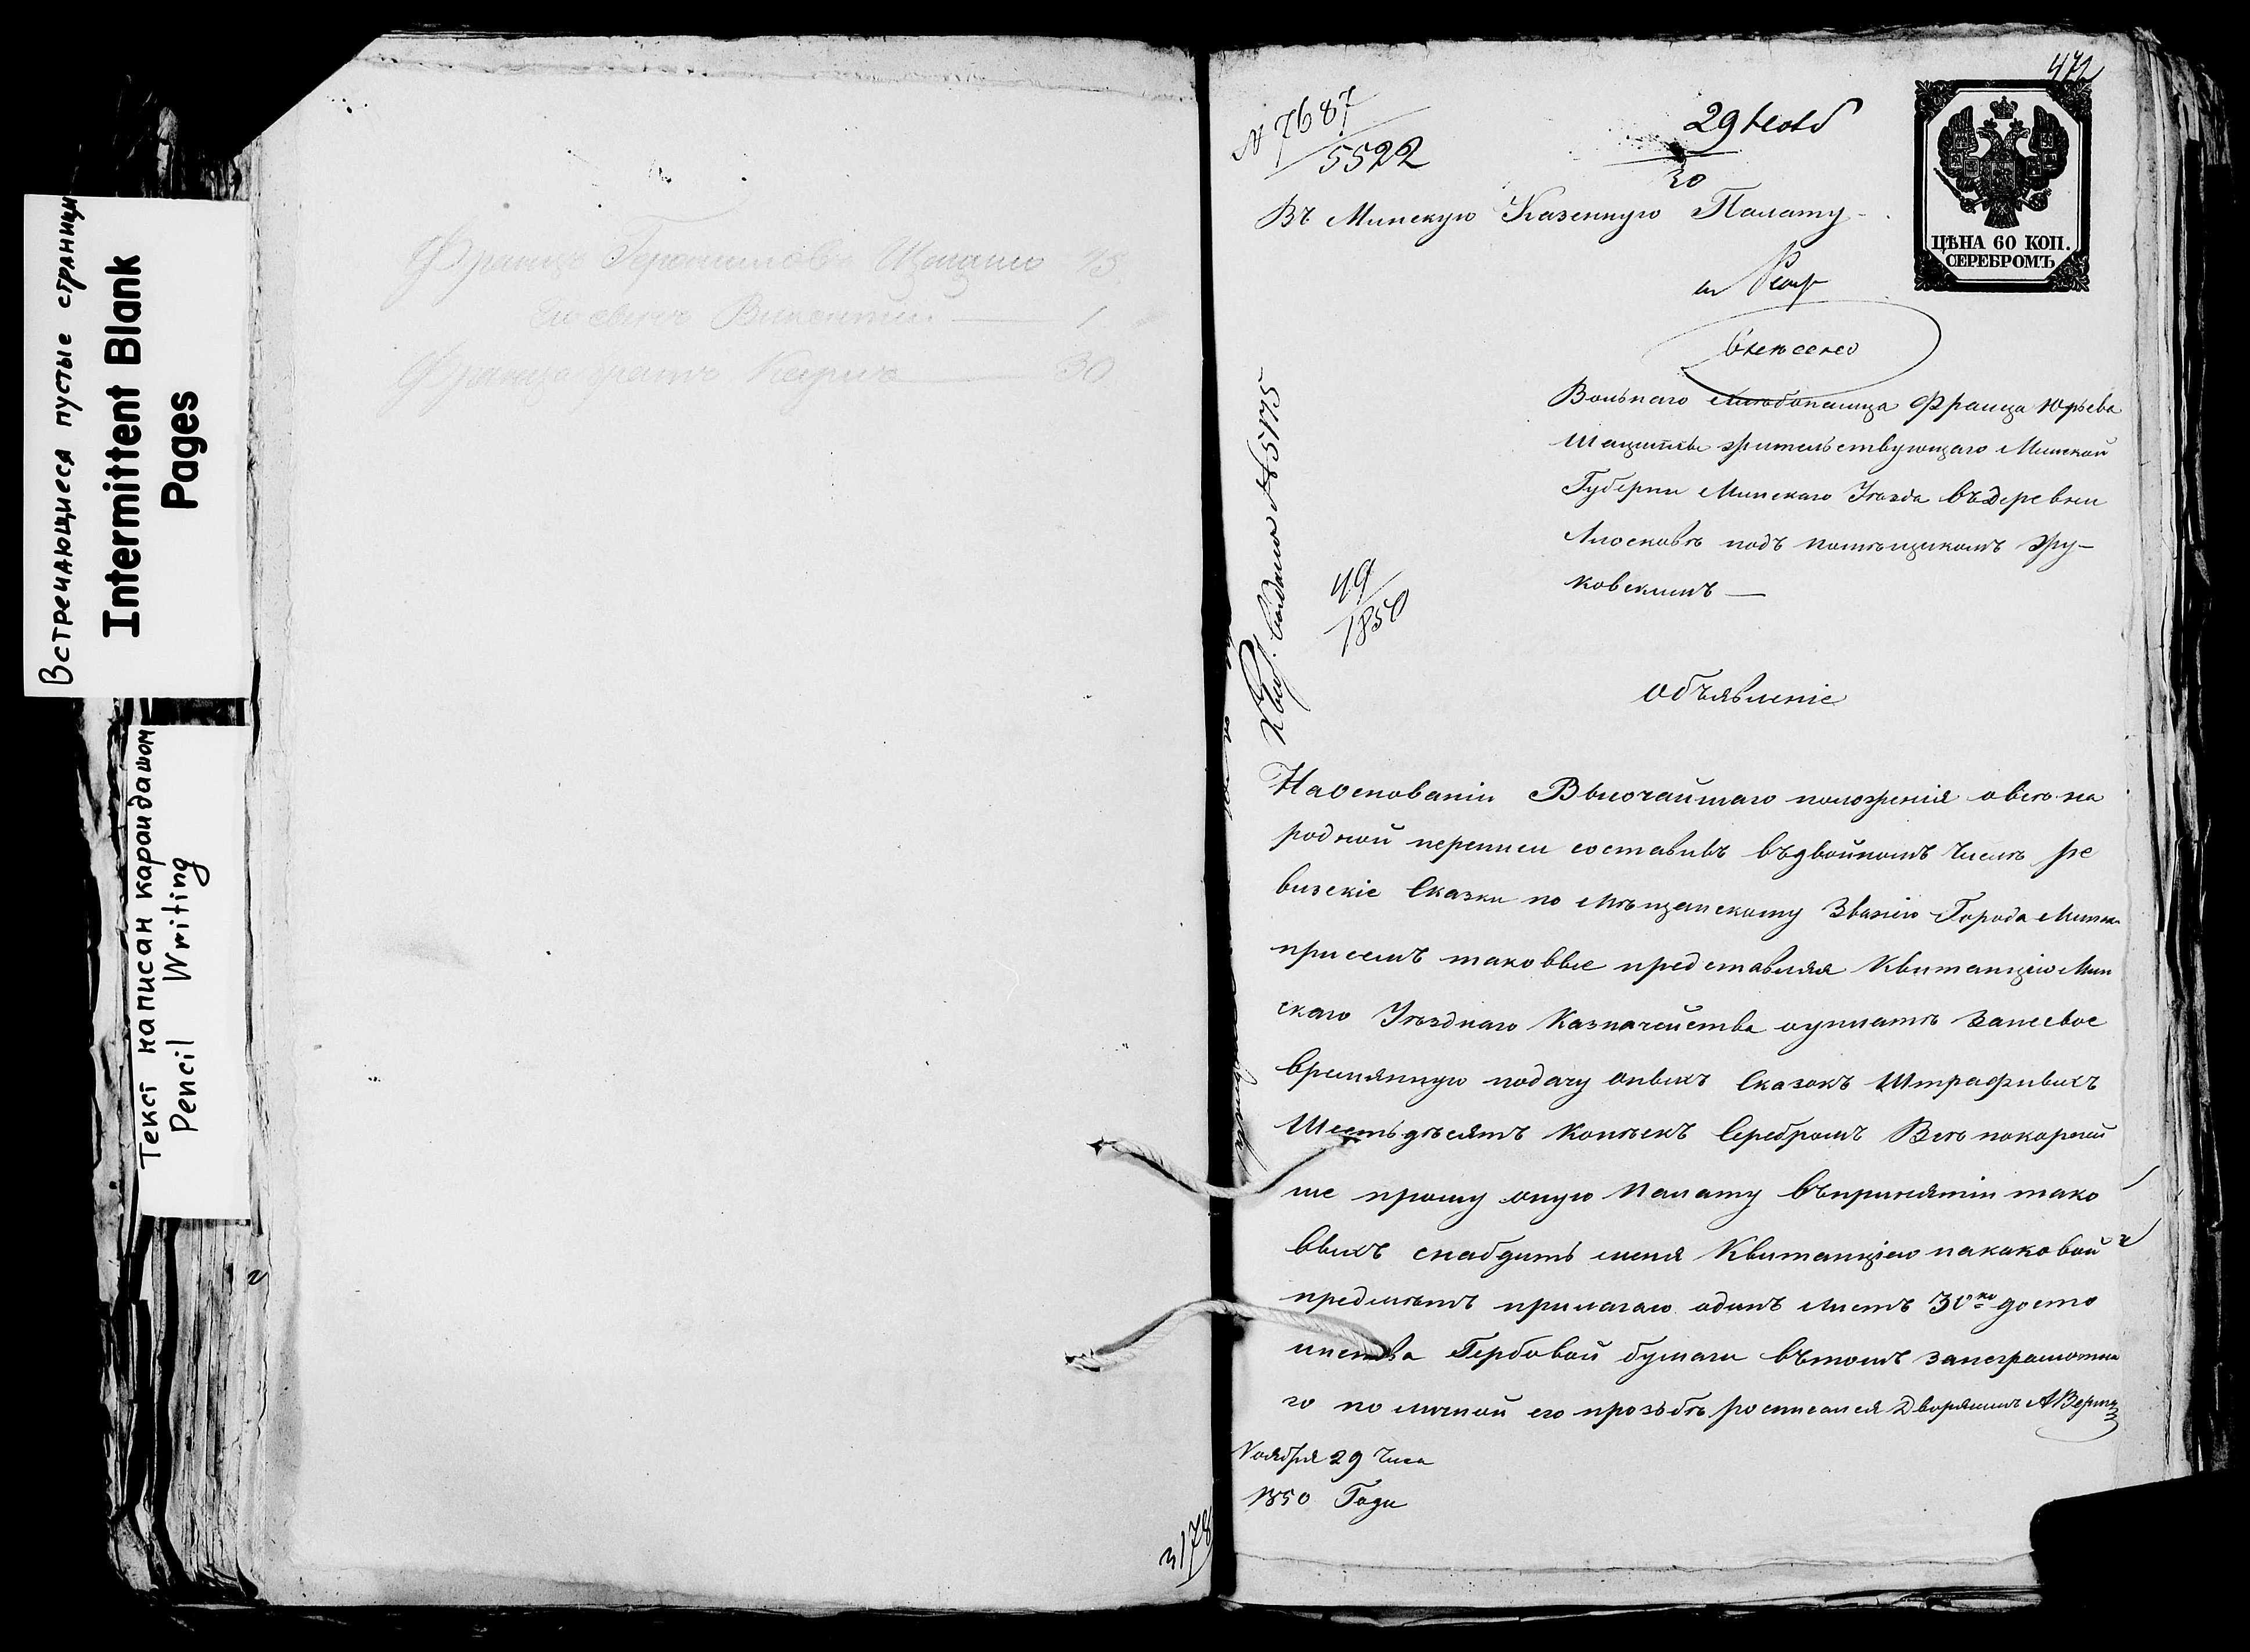 Встречающиеся пустые страницы
Intermittent Blank
Pages
Текст написан карандашом
Pencil Writing
Францъ
его сынъ Викентій — 1
Франца братъ — 30
3178
472
№ 7687
5522
29 Нояб
30
ЦѢНА 60 КОП.
СЕРЕБРОМЪ
Въ Минскую Казенную Палату
Вольнаго Людбопашца Франца Юрьева
жительствующаго Минской
Губерніи Минскаго Уѣзда въ деревни
подъ помѣщикомъ Жу-
ковскимъ —
№ 5175
49
1850
Объявленіе
На основаніи Высочайшаго положенія о всѣ на
родной переписи составивъ въ двойномъ числѣ ре
визскіе Сказки по Мѣщанскому Званію Города Минска
при семъ таковые представляя Квитанцію Мин
скаго Уѣзднаго Казначейства о уплатѣ за несвое
времянную подачу оныхъ Сказокъ Штрафныхъ
Шестьдѣсятъ Копѣекъ Серебромъ Всѣ покорнѣй
ше прошу оную Палату въ принятіи тако
выхъ снабдить меня Квитанціею на каковой
предметъ прилагаю одинъ листъ 30 ко досто
инства Гербовой бумаги въ томъ за неграмотна
го по личной его прозьбѣ росписался Дворянинъ
Ноября 29 Чиса
1850 Года